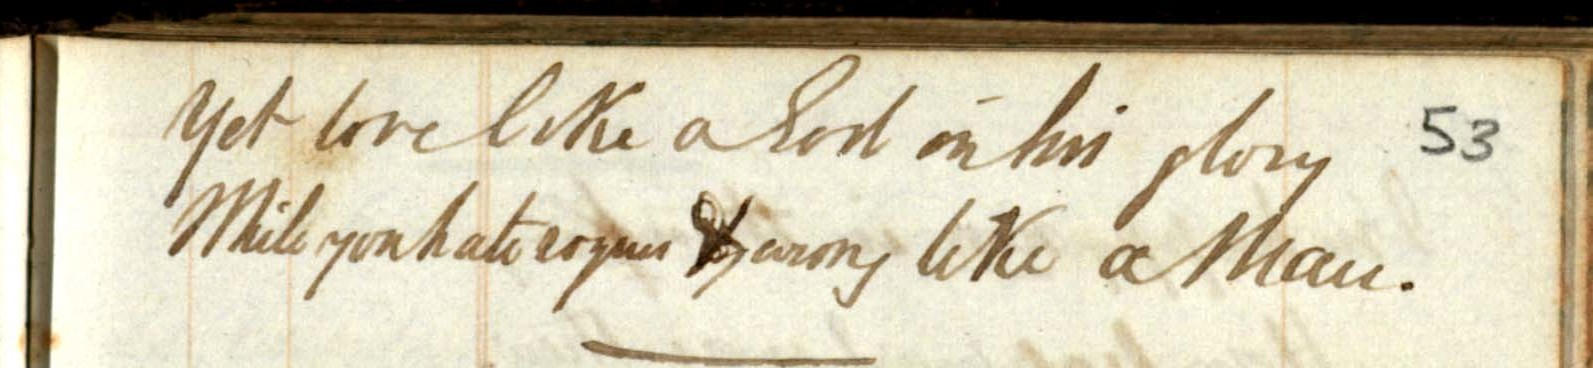 Yet love like a God in his glory
53
While you hate rogues & wrong like a Man.